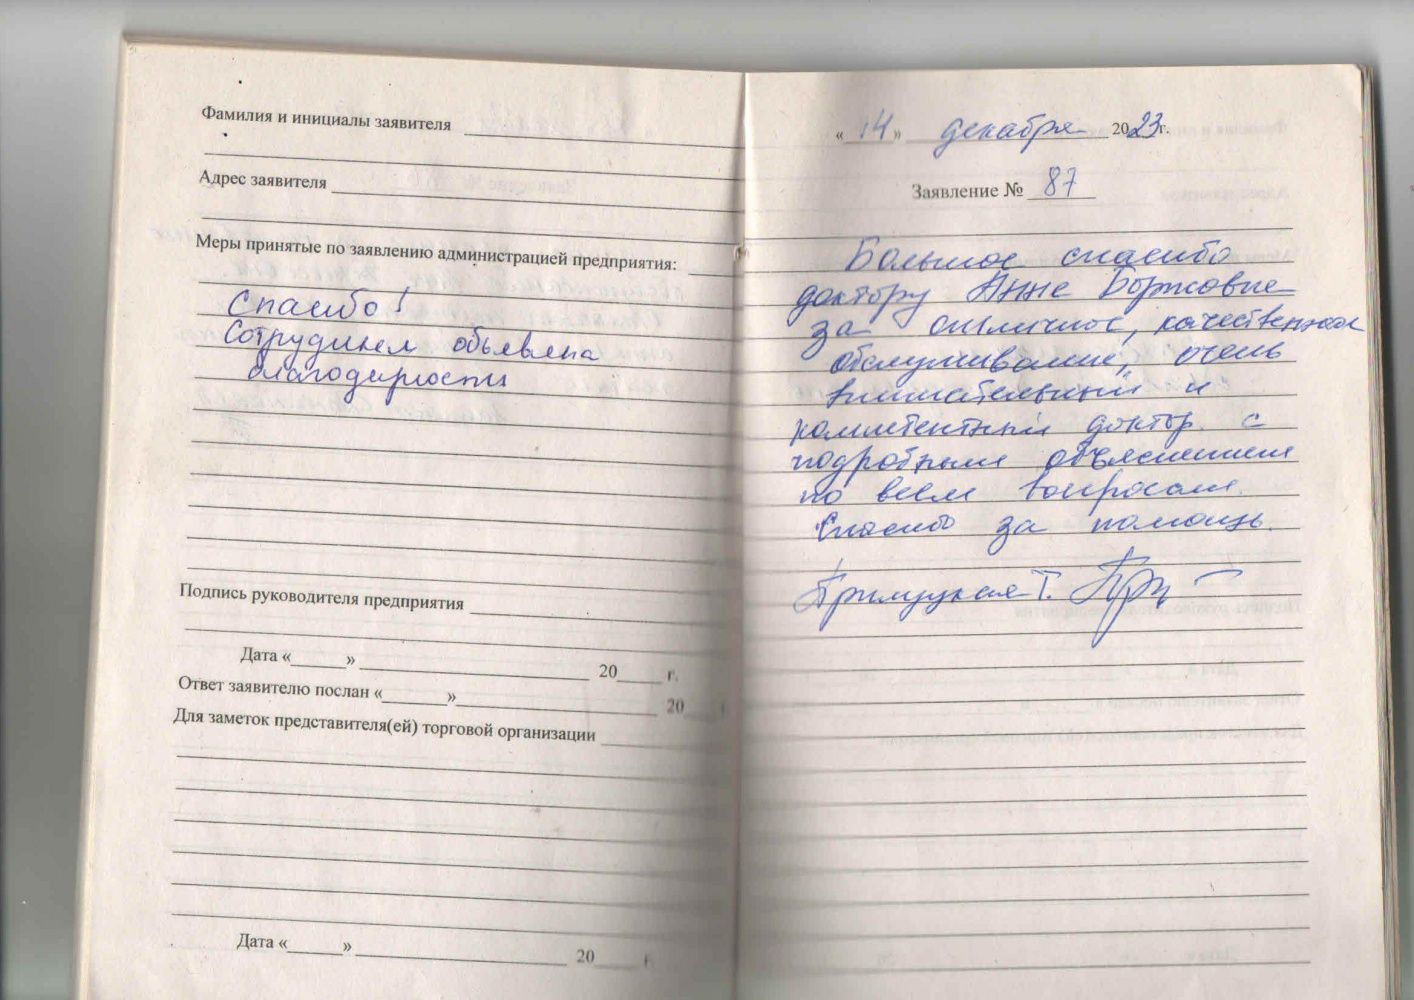 Фамилия и инициалы заявителя
Адрес заявителя
Меры принятые по заявлению администрацией предприятия:
Спасибо!
Сотрудникам объявлена
благодарность
Подпись руководителя предприятия
Дата «______» ______ 20____ г.
Ответ заявителю послан «______» ______ 20____ г.
Для заметок представителя(ей) торговой организации
Дата «______» ______ 20____ г.
«14» декабря 2023г.
Заявление № 87
Большое спасибо
доктору Анне Борисовне
за отличное, качественное
обслуживание, очень
внимательный и
компетентный доктор с
подробными объяснениями
по всем вопросам.
Спасибо за помощь.
Т.